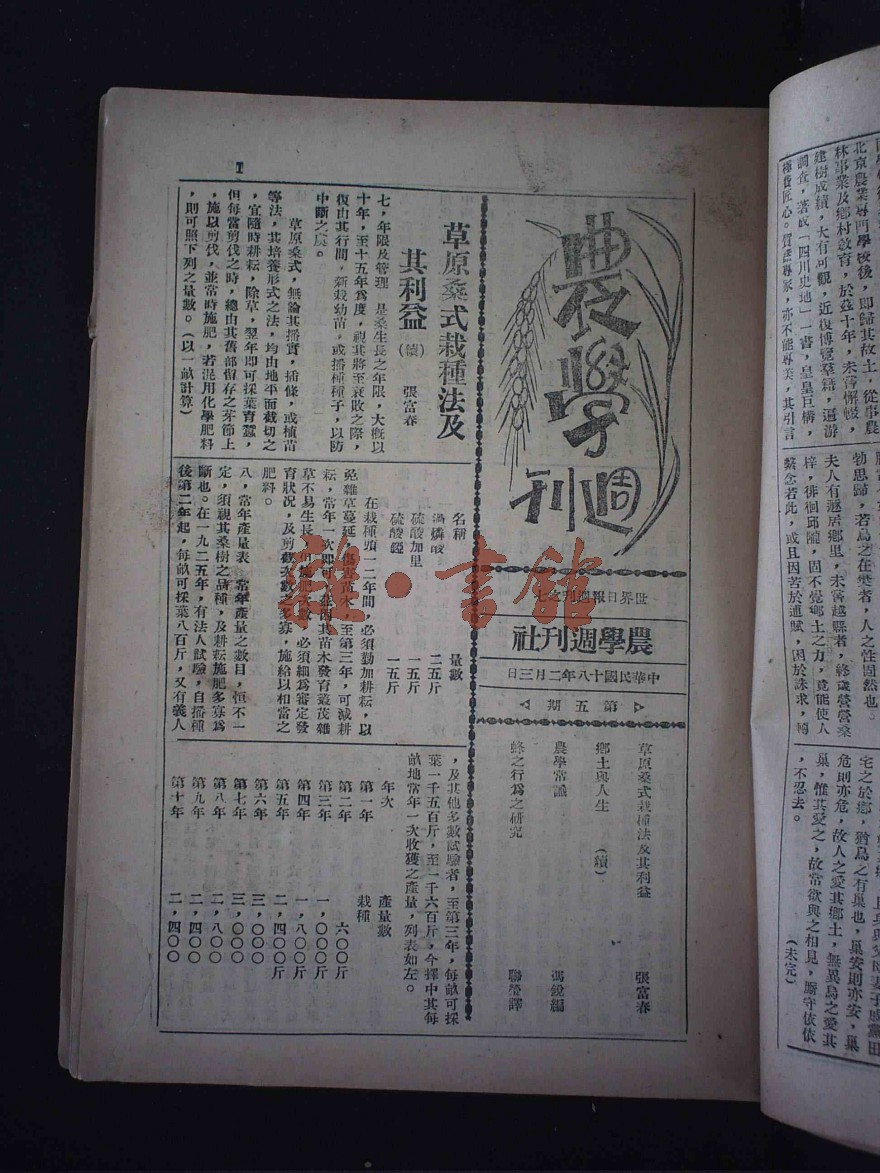 農學週刊
世界日報週刊之七
農學週刊社
中華民國十八年二月三日
第五期
草原桑式栽種法及其利益 張富春
鄉土與人生 (續)
農學常識 馮銳編
蜂之行為之研究 聯瑩譯
1
草原桑式栽種法及
其利益 (續) 張富春
七,年限及管理 是桑生長之年限,大概以
十年,至十五年為度,視其將至衰敗之際,
復由其行間,新栽幼苗,或播種種子,以防
中斷之虞。
草原桑式,無論其播實,插條,或植苗
等法,其培養形式之法,均由地平面截切之
,宜隨時耕耘,除草,翌年即可採葉育蠶,
但每當剪伐之時,總由其舊部留存之芽節上
,施以剪伐,並當時施肥,若混用化學肥料
,則可照下列之量數。(以一畝計算)
名稱 量數
過燐酸 二五斤
硫酸加里 一五斤
硫酸錏 一五斤
在栽種頭一二年間,必須勤加耕耘,以
免雜草蔓延,傷害苗木,至第三年,可減耕
耘,當年一次即可,蓋因其苗木發育叢茂雜
草不易生長,但施肥次數,必須細為審定發
育狀況,及剪截次數之多寡,施給以相當之
肥料。
八,當年產量表 當年產量之數目,恒不一
定,須視其桑樹之品種,及耕耘施肥多寡為
斷也。在一九二五年,有法人試驗,自播種
後第二年起,每畝可採葉八百斤,又有義人
,及其他多數試驗者,至第三年,每畝可採
葉一千五百斤,至一千六百斤,今擇中其每
畝地當年一次收獲之產量,列表如左。
年次 產量數
第一年 栽種
第二年 六〇〇斤
第三年 一,〇〇〇斤
第四年 一,八〇〇斤
第五年 二,四〇〇斤
第六年 三,〇〇〇
第七年 三,〇〇〇
第八年 二,八〇〇
第九年 二,四〇〇
第十年 二,四〇〇
北京農業專門學校後,即歸其故土,從事農
林事業及鄉村教育,於茲十年,未嘗懈怠,
建樹成績,大有可觀,近復博覽羣籍,遍游
調查,著成「四川史地」一書,皇皇巨構,
極費匠心。質諸專家,亦不能專美,其引言
勃思歸,若鳥之在樊者,人之性固然也。
夫人有遯居鄉里,未嘗越縣者,終歲營營桑
梓,徘徊邱隴,固不覺鄉土之力,竟能使人
繫念若此,或且因苦於逋賦,困於誅求,轉
宅之於鄉,猶鳥之有巢也,巢安則亦安,巢
危則亦危,故人之愛其鄉土,無異鳥之愛其
巢,惟其愛之,故常欲與之相見,廝守依依
,不忍去。 (未完)
雅·書館